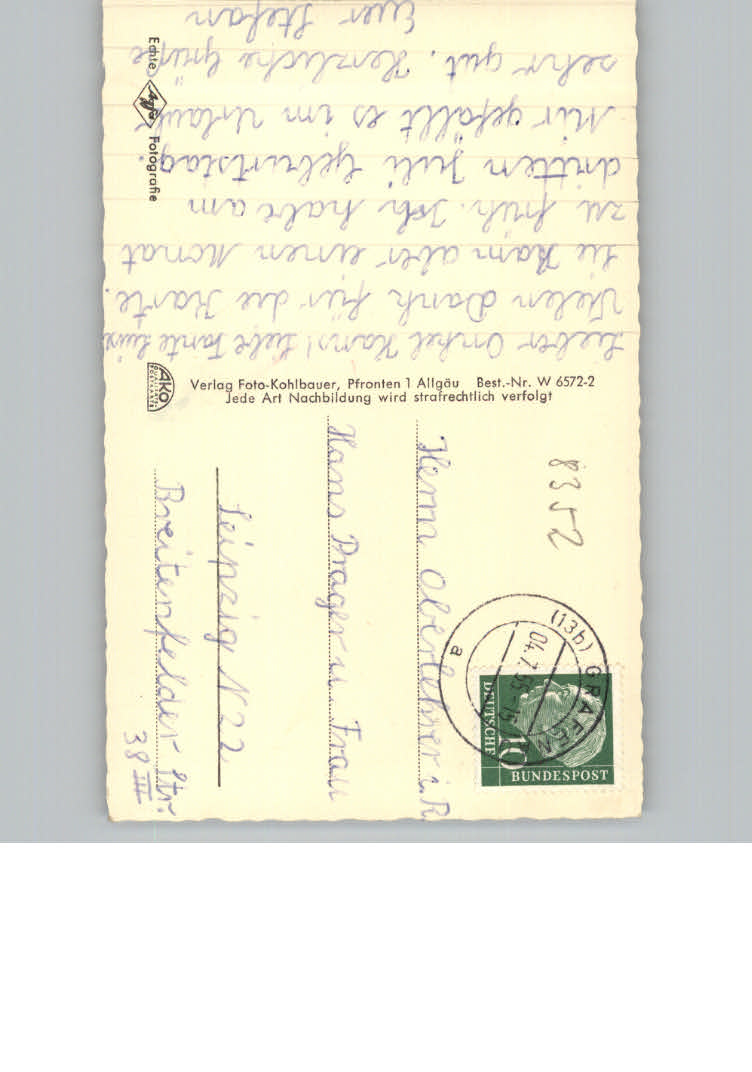 Lieber Onkel Hans! Liebe Tante Luise
Vielen Dank für die Karte.
Sie kam aber einen Monat
zu früh. Ich habe am
dritten Juli Geburtstag.
Mir gefällt es im Urlaub
sehr gut. Herzliche Grüße
Euer Stefan
Echte Agfa Fotografie
AKO
Verlag Foto-Kohlbauer, Pfronten 1 Allgäu Best.-Nr. W 6572-2
Jede Art Nachbildung wird strafrechtlich verfolgt
8352
(13b) GRAFEN
04.7.
a
DEUTSCHE
BUNDESPOST
10
Herrn Oberlehrer i. R.
Hans Prager u. Frau
Leipzig N 22
Breitenfelder Str.
38 III